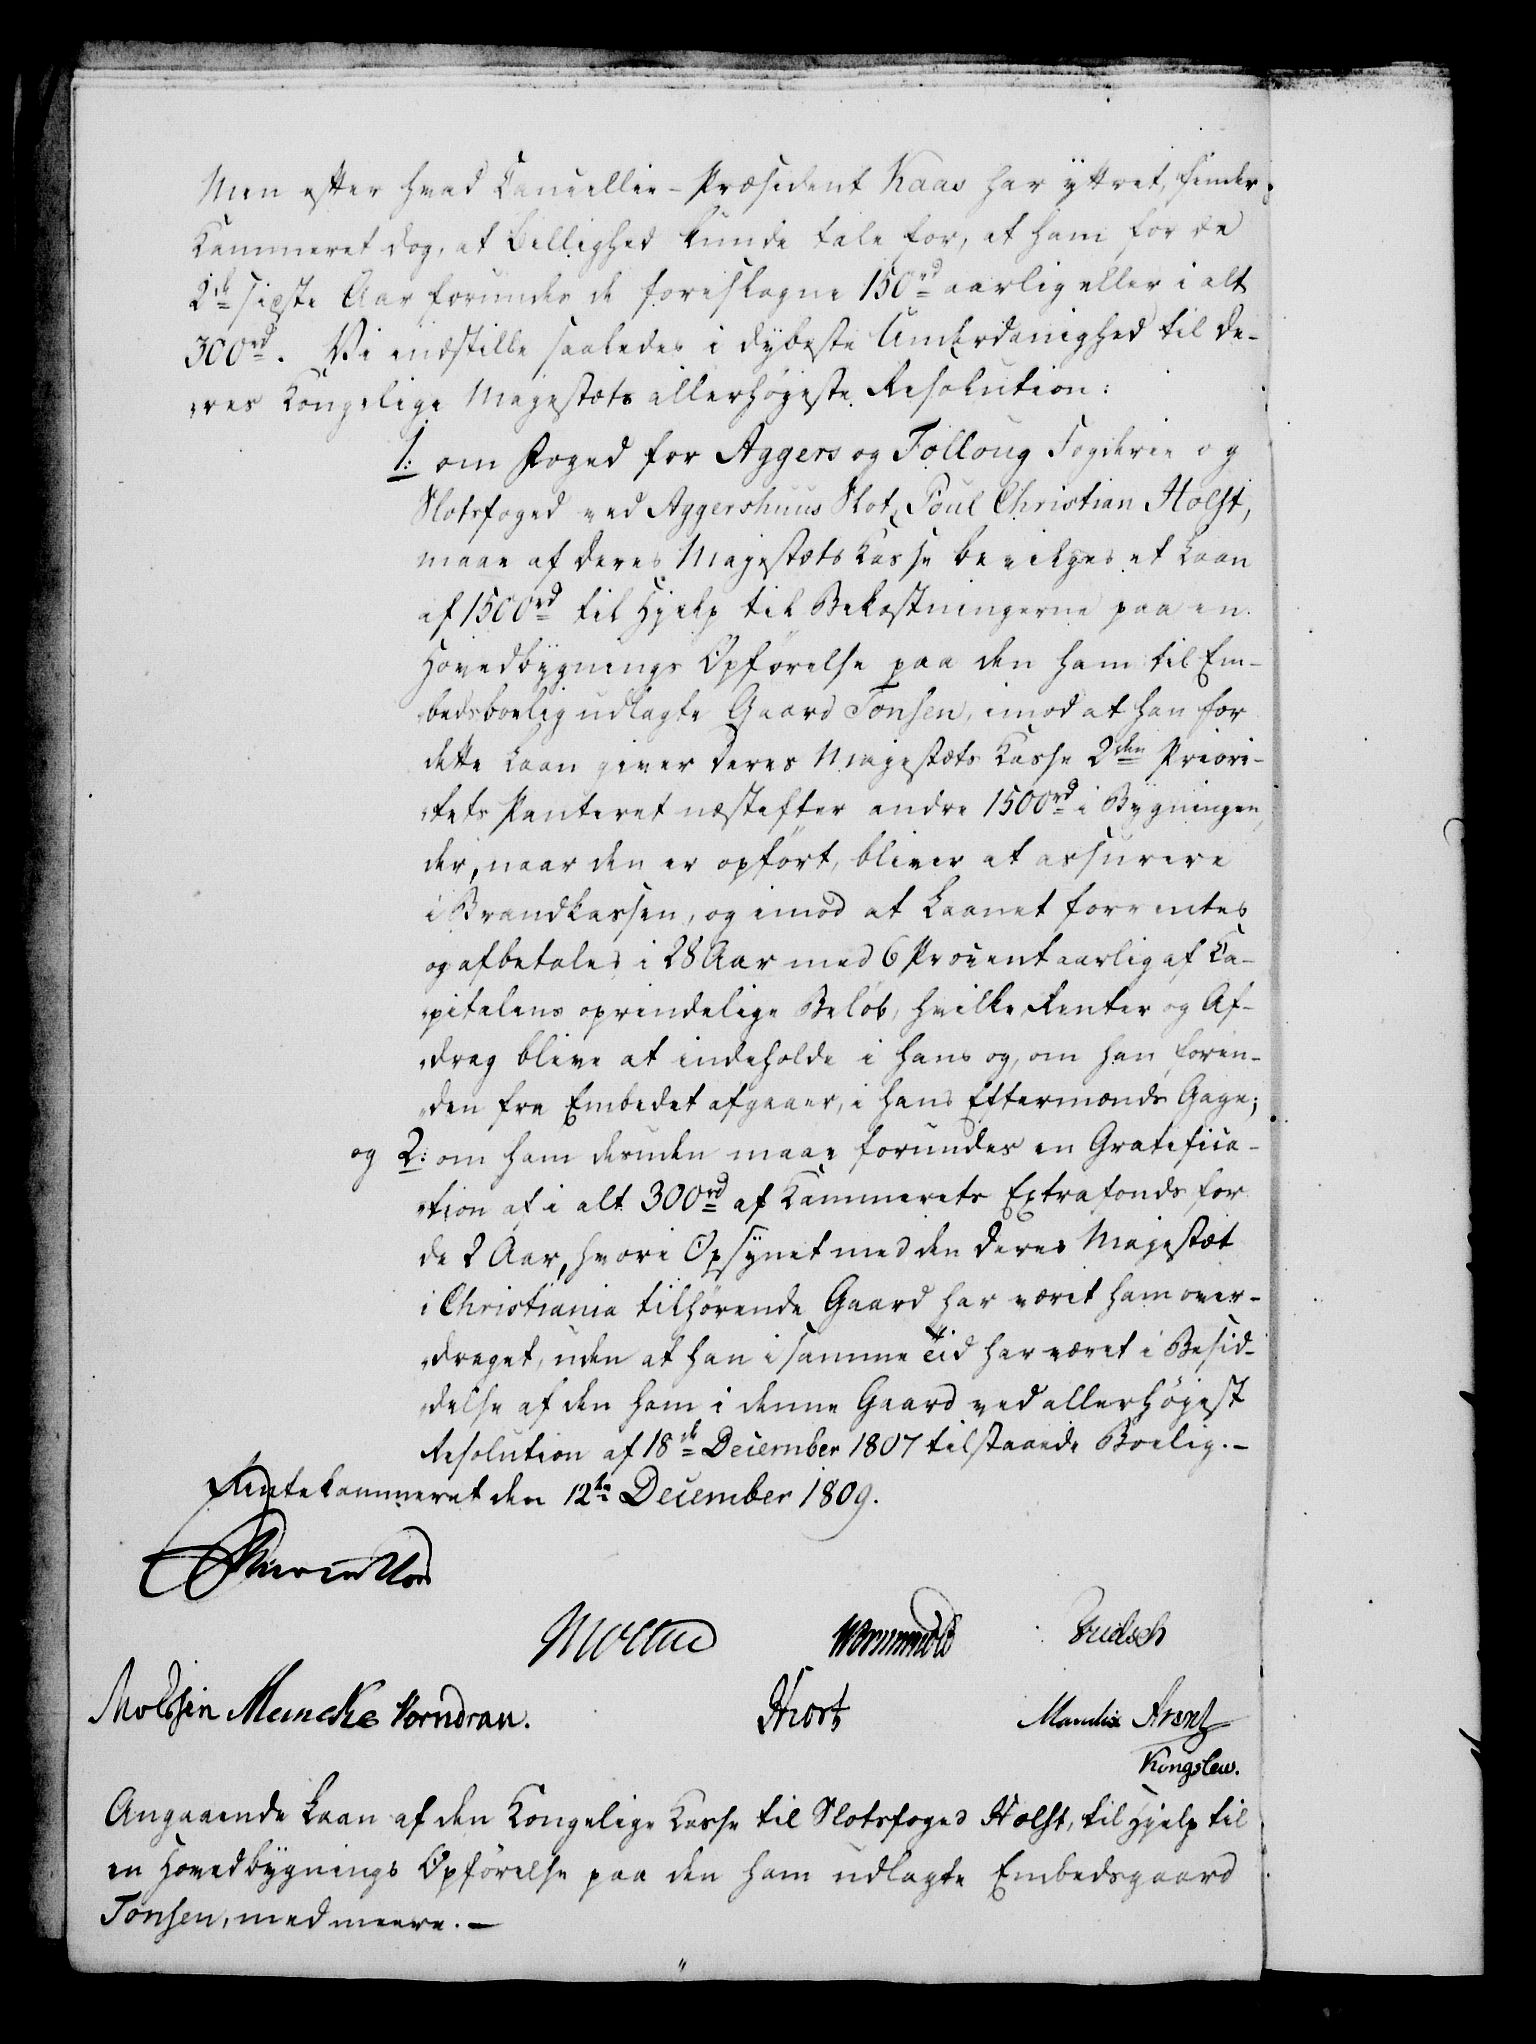 Men efter hvad Cancellie-Præsident Kaas har yttret, finder
Kammeret dog, at Billighed kunde tale for, at ham for de
2de sidste Aar forundes de foreslagne 150rd aarlig eller i alt
300rd. Vi indstille saaledes i dybeste Underdanighed til De-
res Kongelige Majestæts allerhøjeste Resolution:
1: om Foged for Aggers og Folloug Fogderie og
Slotsfoged ved Aggershuus Slot, Poul Christian Holst,
maae af Deres Majestæts Kasse bevilges et Laan
af 1500rd til Hjelp til Bekostningerne paa en
Hovedbygnings Opførelse paa den ham til Em-
bedsboelig udlagte Gaard Tonsen, imod at han for
dette Laan giver Deres Majestæts Kasse 2den Priori-
tets Panteret næstefter andre 1500rd i Bygningen,
der, naar den er opført, bliver at assurere
i Brandkassen, og imod at Laanet forrentes
og afbetales i 28 Aar med 6 Procent aarlig af Ca-
pitalens oprindelige Beløb, hvilke Renter og Af-
drag blive at indeholde i hans og, om han forin-
den fra Embedet afgaaer, i hans Eftermands Gage;
og 2: om ham desuden maae forundes en Gratifica-
tion af i alt 300rd af Kammerets Extrafonds for
de 2 Aar, hvori Opsynet med den Deres Majestæt
i Christiania tilhørende Gaard har været ham over-
draget, uden at han i samme Tid har været i Besid-
delse af den ham i denne Gaard ved allerhøjest
Resolution af 18de December 1807 tilstaaede Boelig.-
Rentekammeret den 12te December 1809.
Moltke Wormskiold
Meincke Korndran.
Hiort
Mandix Arentz
Kongslew.
Angaaende Laan af den Kongelige Kasse til Slotsfoged Holst, til Hjelp til
en Hovedbygnings Opførelse paa den ham udlagte Embedsgaard
Tonsen, med meere.-